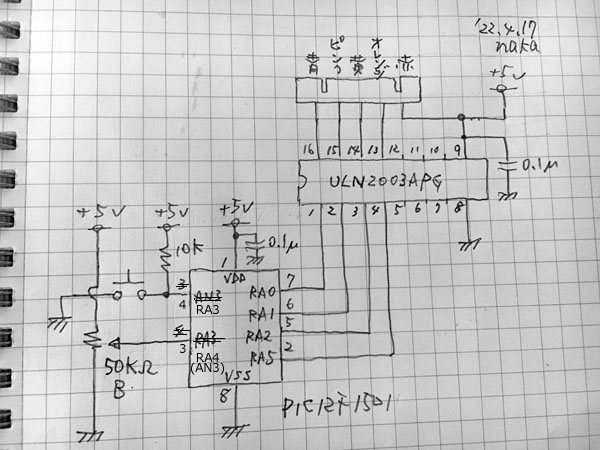 '22.4.17
naka
青 ピンク 黄 オレンジ 赤
+5V
16 15 14 13 12 11 10 9
0.1μ
ULN2003APG
1 2 3 4 5 6 7 8
+5V +5V +5V
10K
1
0.1μ
VDD
3 AN3
4 RA3
RA0 7
RA1 6
RA2 5
RA5 2
RA3
3 RA4
(AN3)
50KΩ
B
VSS
8
PIC12F1501